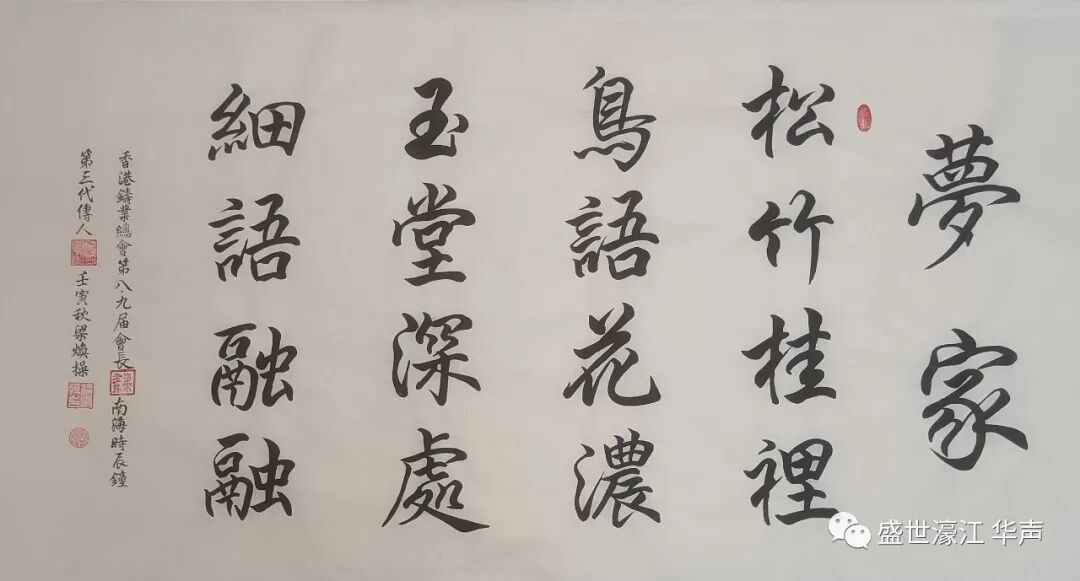 夢家
松竹桂裡
鳥語花濃
玉堂深處
細語融融
香港鑄業總會第八·九届會長
南海時辰鐘
第三代傳人
壬寅秋梁煥操
盛世濠江 华声